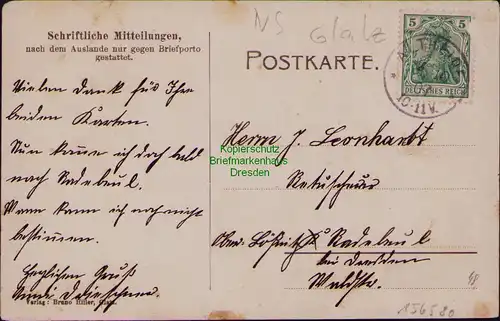 Schriftliche Mitteilungen,
nach dem Auslande nur gegen Briefporto
gestattet.
NS Glatz
POSTKARTE.
5 5
DEUTSCHES REICH
10-11V.
Vielen Dank für Ihre
beiden Karten.
Nun komme ich doch bald
nach Radebeul.
Wann kann ich noch nicht
bestimmen.
Herzlichen Gruß
Verlag: Bruno Hiller, Glatz.
Herrn J. Leonhardt
Kopierschutz
Briefmarkenhaus
Dresden
Retuscheur
Ober Lößnitz Radebeul
bei Dresden
Waldstr.
156580